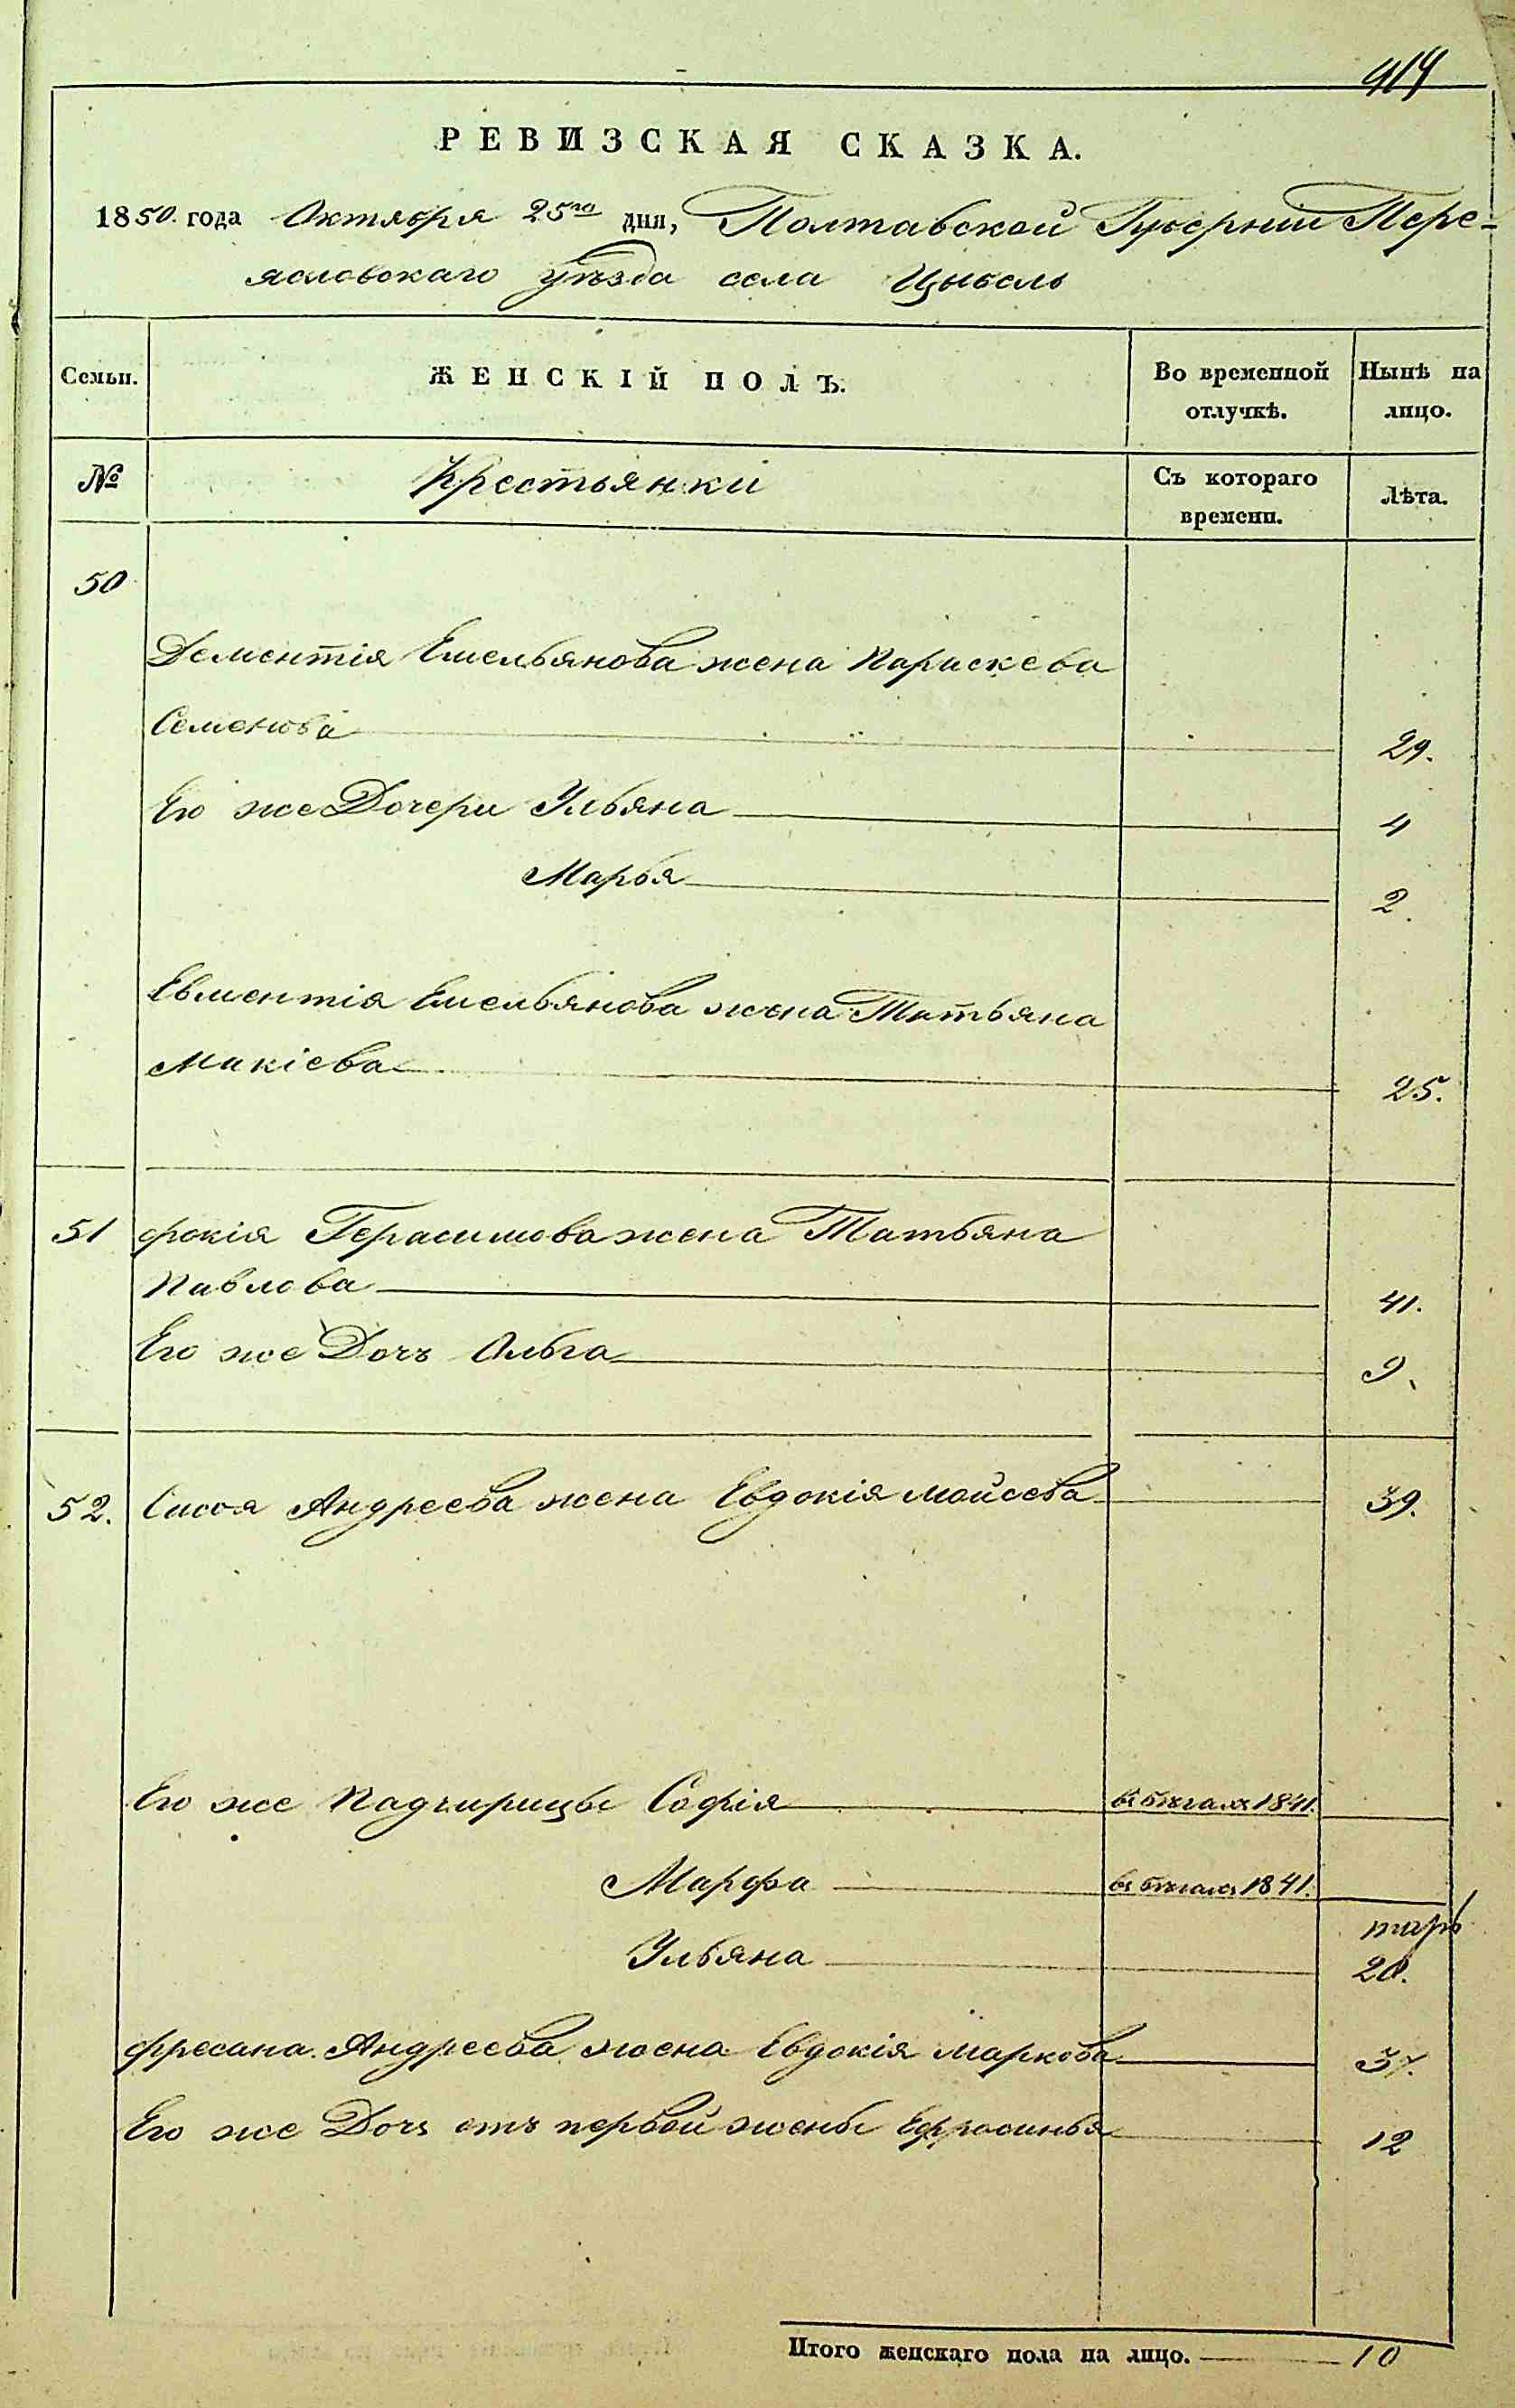 414
РЕВИЗСКАЯ СКАЗКА.
1850. года Октября 25го дня, Полтавской Губерніи Пере-
ясловскаго уѣзда села Цыбель
Семьи. ЖЕНСКІЙ ПОЛЪ. Во временной отлучкѣ. Нынѣ на лицо.
№ Крестьянки Съ котораго времени. Лѣта.
50
Дементія Емельянова жена Параскева
Семенова 29.
Его же Дочери Ульяна 4
Марья 2.
Евментія Емельянова жена Татьяна
Макіева 25.
51 фокія Герасимова жена Татьяна
Павлова 41.
Его же Дочь Ольга 9.
52. Сисоя Андреева жена Евдокія Мойсева 39.
Его же Падчирицы Софія въ бѣгахъ 1841.
Марфа въ бѣгахъ 1841.
Ульяна 20.
Андреева жена Евдокія Маркова 37.
Его же Дочь отъ первой жены Ефросинья 12
Итого женскаго пола на лицо. 10